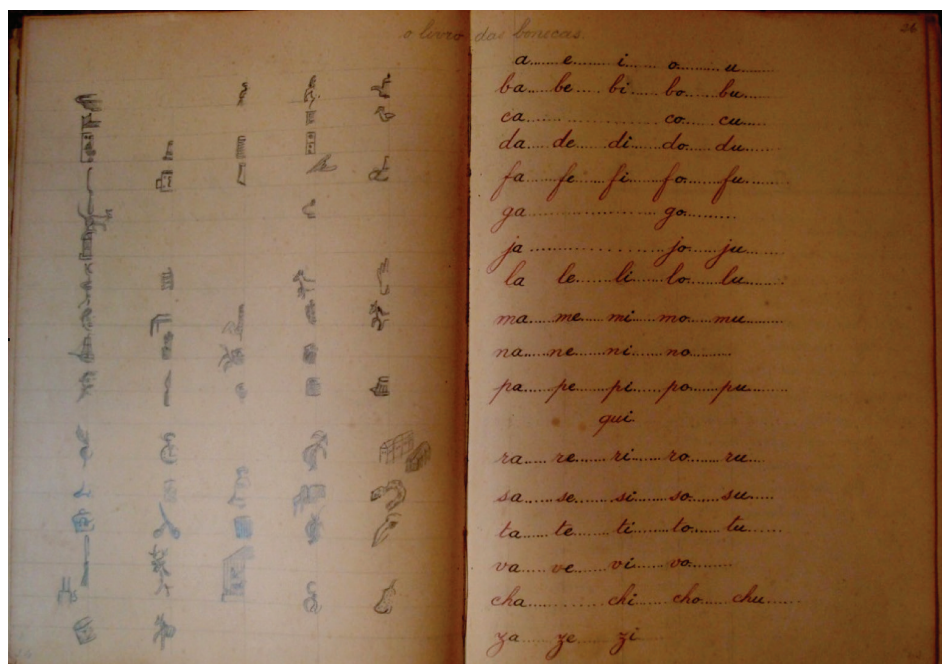 o livro das bonecas.
26
a......e......i......o......u......
ba.....be.....bi.....bo.....bu.....
ca..................co.....cu.....
da.....de.....di.....do.....du.....
fa.....fe.....fi.....fo.....fu.....
ga..................go.....
ja..................jo.....ju.....
la.....le.....li.....lo.....lu.....
ma.....me.....mi.....mo.....mu.....
na.....ne.....ni.....no.....
pa.....pe.....pi.....po.....pu.....
qui
ra.....re.....ri.....ro.....ru.....
sa.....se.....si.....so.....su.....
ta.....te.....ti.....to.....tu.....
va.....ve.....vi.....vo.....
cha...........chi.....cho.....chu.....
za.....ze.....zi